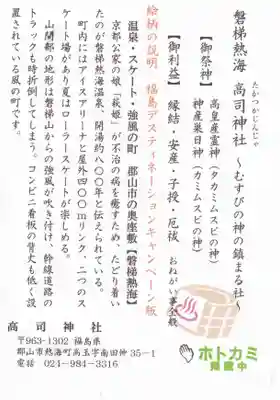 磐梯熱海 高司神社 ～むすびの神の鎮まる社～
たかつかじんじゃ
【御祭神】 高皇産霊神(タカミムスビの神)
神産巣日神(カミムスビの神)
【御利益】 縁結・安産・子授・厄祓 おねがい事全般
絵柄の説明 福島デスティネーションキャンペーン版
温泉・スケート・強風の町 郡山市の奥座敷【磐梯熱海】
京都公家の娘「萩姫」が不治の病を癒すため、たどり着い
たのが磐梯熱海温泉、開湯約八〇〇年と伝えられている。
町内にはアイスアリーナと屋外四〇〇mリンク、二つのス
ケート場があり夏はローラースケートが楽しめる。
山間部の地形は磐梯山からの強風が吹き付け、幹線道路の
トラックも時折倒してしまう。コンビニ看板の背丈も低く設
されている風の町です。
高司神社
〒963-1302 福島県
郡山市熱海町高玉字南田仲35-1
電話 024-984-3316
ホトカミ
掲載中